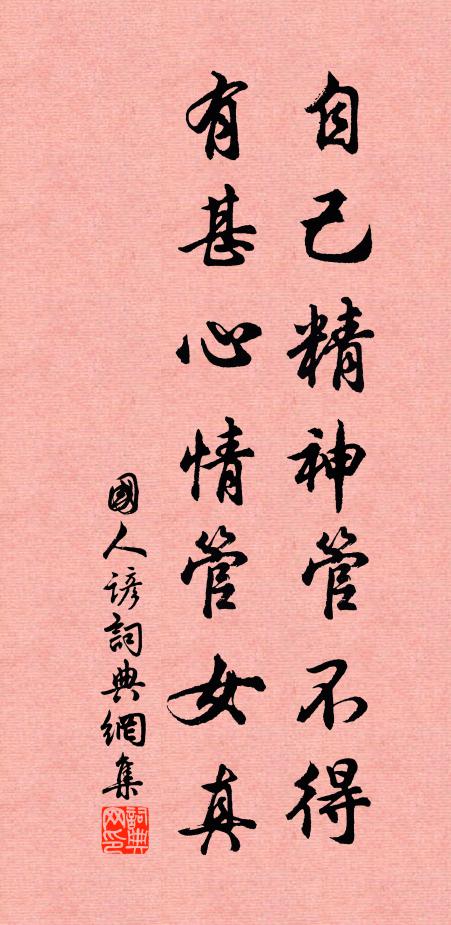 自己精神管不得
有甚心情管女真
國人諺詞典網集
詞典网印